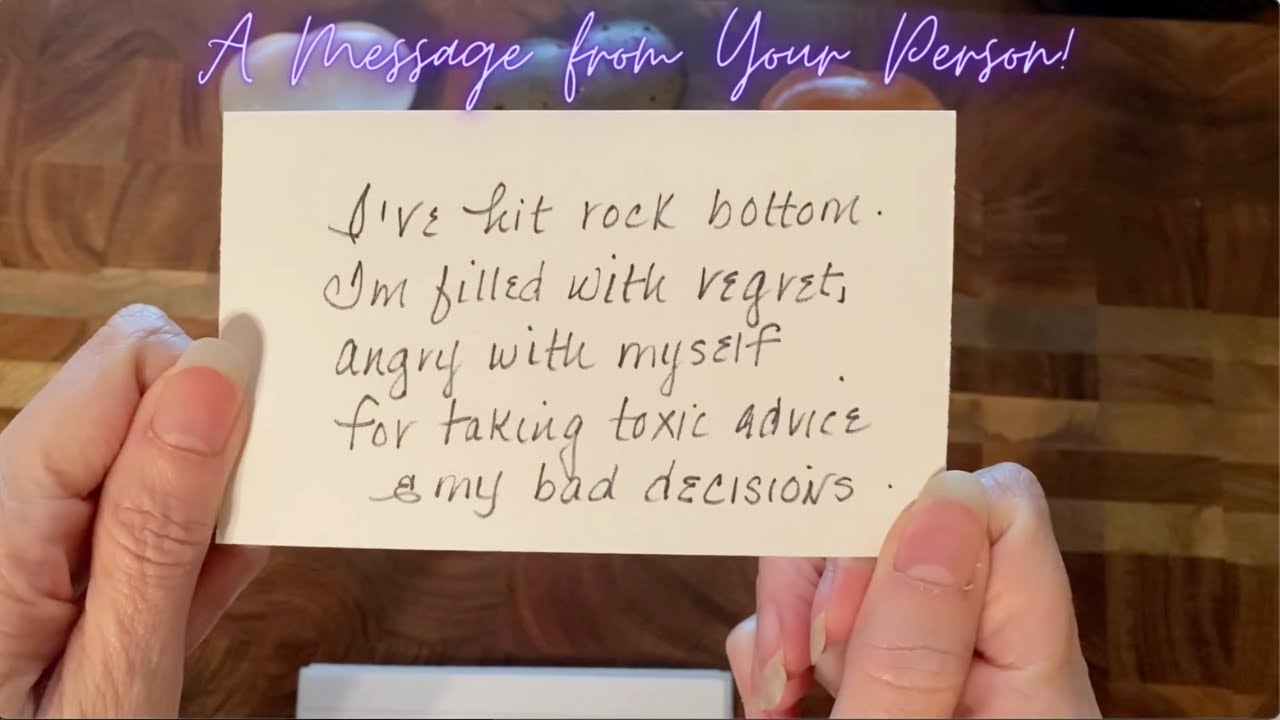 A Message from Your Person!
I've hit rock bottom.
I'm filled with regret,
angry with myself
for taking toxic advice
& my bad decisions.